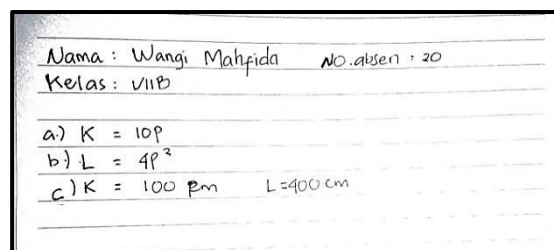 Nama : Wangi Mahfida No.absen : 20
Kelas : VIIB
a.) K = 10p
b) L = 4p²
c) K = 100 pm L=400 cm